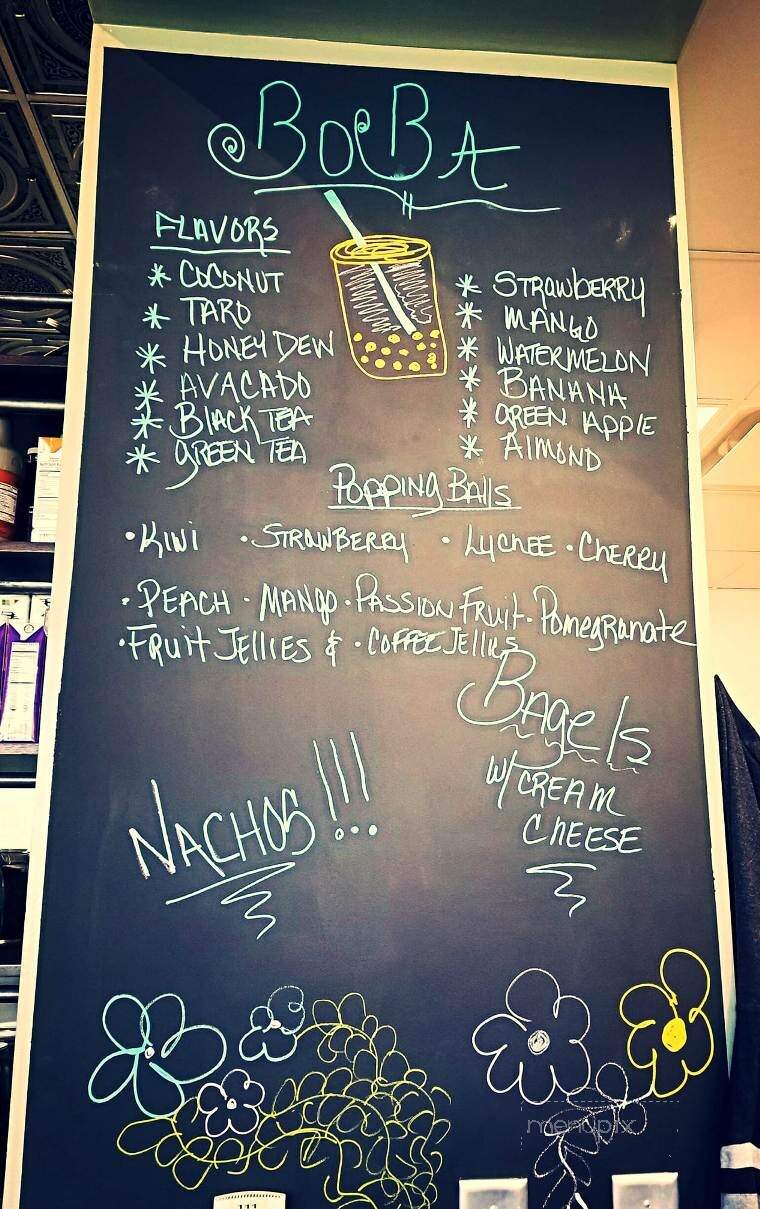 BOBA
FLAVORS
* COCONUT
* TARO
* HONEY DEW
* AVACADO
* BLACK TEA
* GREEN TEA
* STRAWBERRY
* MANGO
* WATERMELON
* BANANA
* GREEN APPLE
* ALMOND
POPPING BALLS
• KIWI • STRAWBERRY • LYCHEE • CHERRY
• PEACH • MANGO • PASSION FRUIT • POMEGRANATE
• FRUIT JELLIES & • COFFEE JELLIES
BAGELS
W/ CREAM
CHEESE
NACHOS!!!
menupix